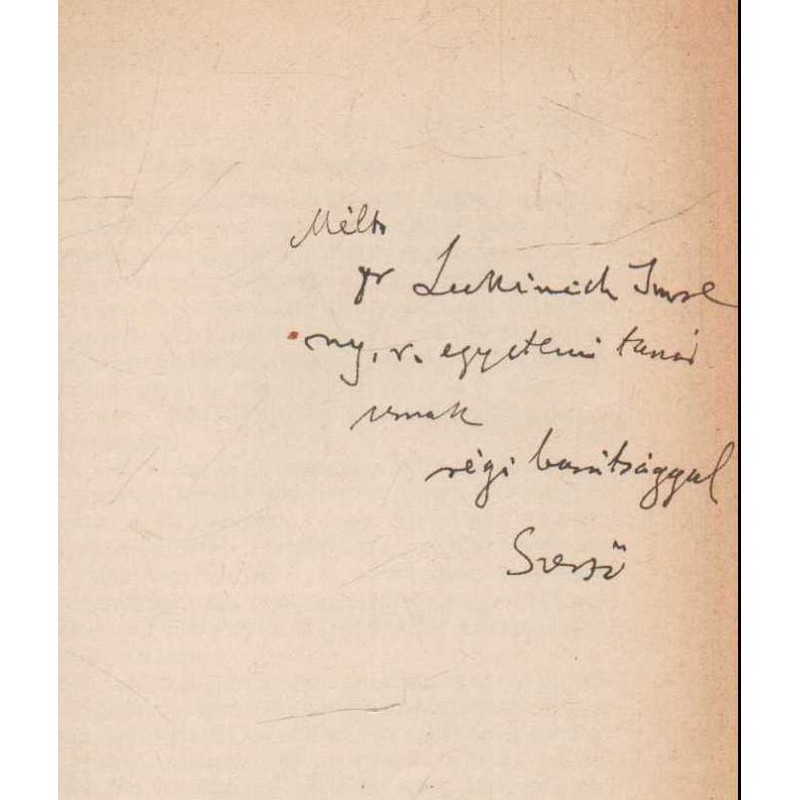 Mélts
Dr Lukinich Imre
ny. r. egyetemi tanár
urnak
régi barátsággal
Szerző